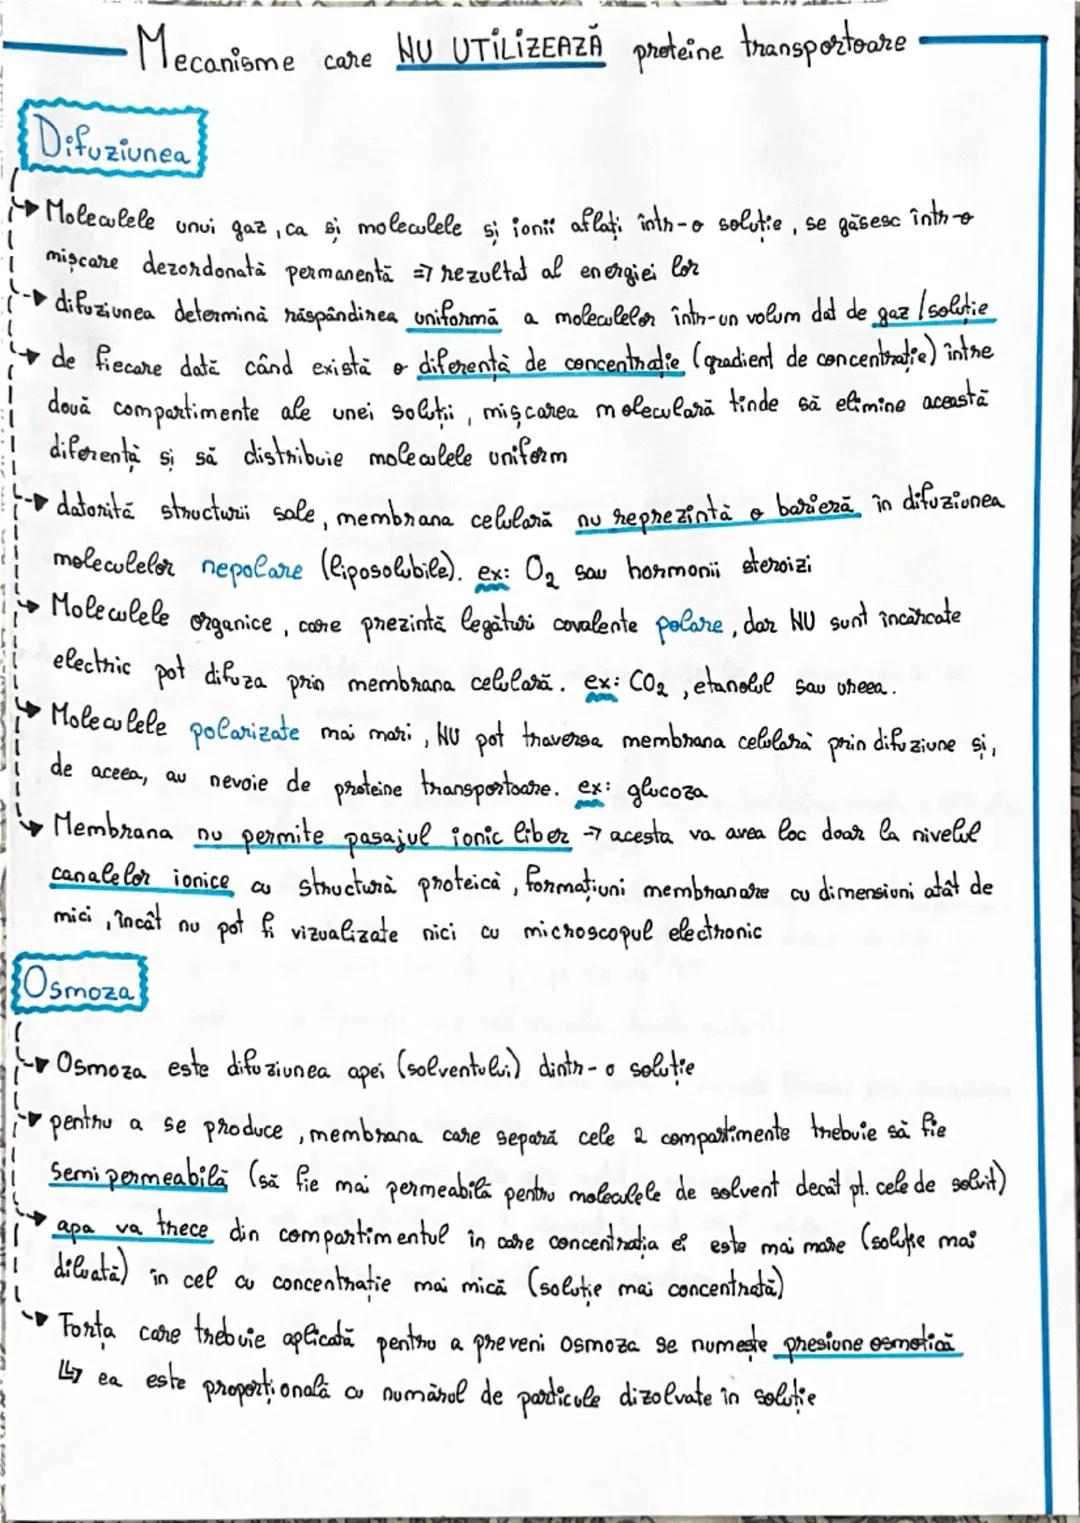 Mecanisme care NU UTILIZEAZĂ proteine transportoare
Difuziunea
Moleculele unui gaz, ca și moleculele și ionii aflați într-o soluție, se găsesc într-o
mișcare dezordonată permanentă => rezultat al energiei lor
difuziunea determină răspândirea uniformă a moleculelor într-un volum dat de gaz/soluție
de fiecare dată când există o diferență de concentrație (gradient de concentrație) între
două compartimente ale unei soluții, mișcarea moleculară tinde să elimine această
diferență și să distribuie moleculele uniform
datorită structurii sale, membrana celulară nu reprezintă o barieră în difuziunea
moleculelor nepolare (liposolubile). ex: O2 sau hormonii steroizi
Moleculele organice, care prezintă legături covalente polare, dar NU sunt încărcate
electric pot difuza prin membrana celulară. ex: CO2, etanolul sau ureea.
Moleculele polarizate mai mari, NU pot traversa membrana celulară prin difuziune și,
de aceea, au nevoie de proteine transportoare. ex: glucoza
Membrana nu permite pasajul ionic liber → acesta va avea loc doar la nivelul
canalelor ionice cu structură proteică, formațiuni membranare cu dimensiuni atât de
mici, încât nu pot fi vizualizate nici cu microscopul electronic
Osmoza
Osmoza este difuziunea apei (solventului) dintr-o soluție
pentru a se produce, membrana care separă cele 2 compartimente trebuie să fie
semipermeabilă (să fie mai permeabilă pentru moleculele de solvent decât pt. cele de solvit)
apa va trece din compartimentul în care concentrația ei este mai mare (soluție mai
diluată) în cel cu concentrație mai mică (soluție mai concentrată)
Forța care trebuie aplicată pentru a preveni osmoza se numește presiune osmotică
ea este proporțională cu numărul de particule dizolvate în soluție